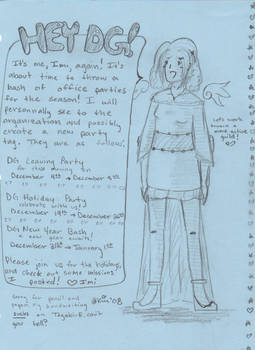 HEY DG!
It's me, Imi, again! It's
about time to throw a
bash of office parties
for the season! I will
personally see to the
organization and possibly
create a new party
tag. They are as follows:
DG Leaving Party
for those moving on
December
DG Holiday Party
celebrate with us!
December
DG New Year Bash!
a new year awaits!
December 31st → January 1st
Please join us for the holidays,
and check out some missions
I posted! ♡ Imi
Let's work
toward a
more active
guild!
♡
sorry for pencil and
paper, my handwriting
sucks on
you tell?
'08